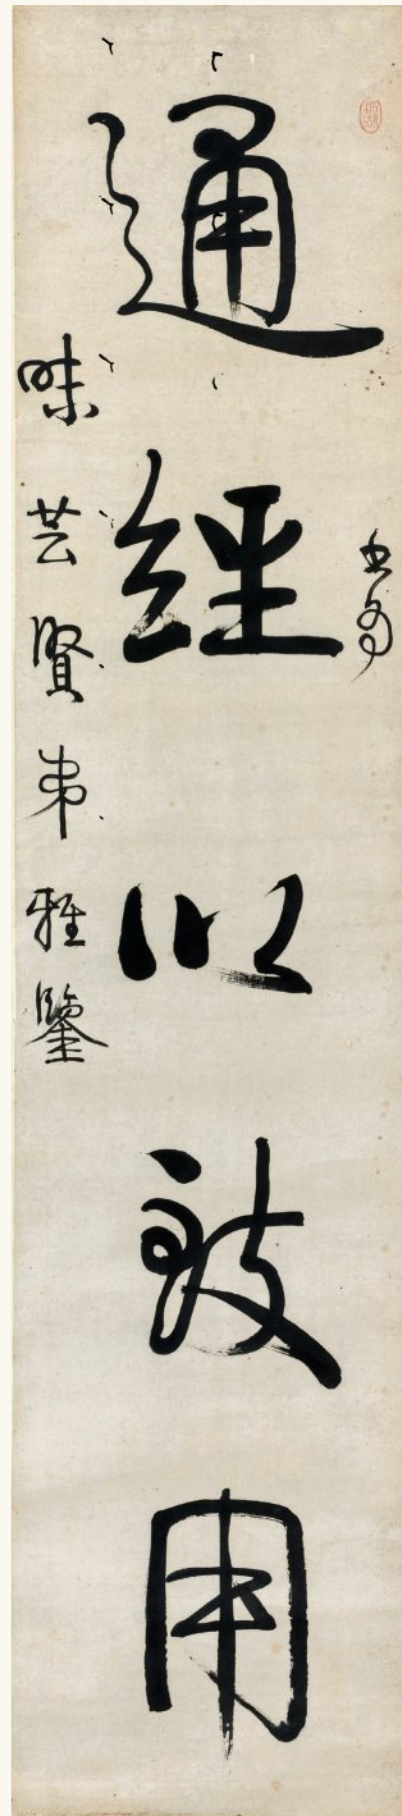 書為
通經以致用
味芸賢弟雅鑒